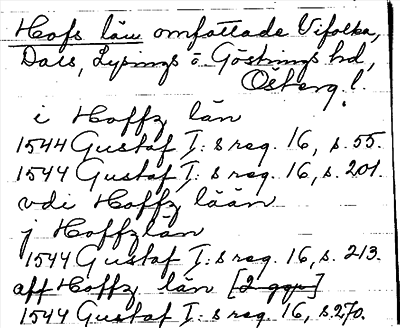 Hofs län omfattade Vifolka,
Dals, Lysings o. Göstrings hd,
Österg. l.
i Hoffz län
1544 Gustaf I:s reg. 16, s. 55.
1544 Gustaf I:s reg. 16, s. 201.
vdi Hoffz lään
j Hoffzlän
1544 Gustaf I:s reg. 16, s. 213.
aff Hoffz län [2 ggr]
1544 Gustaf I:s reg. 16, s. 270.